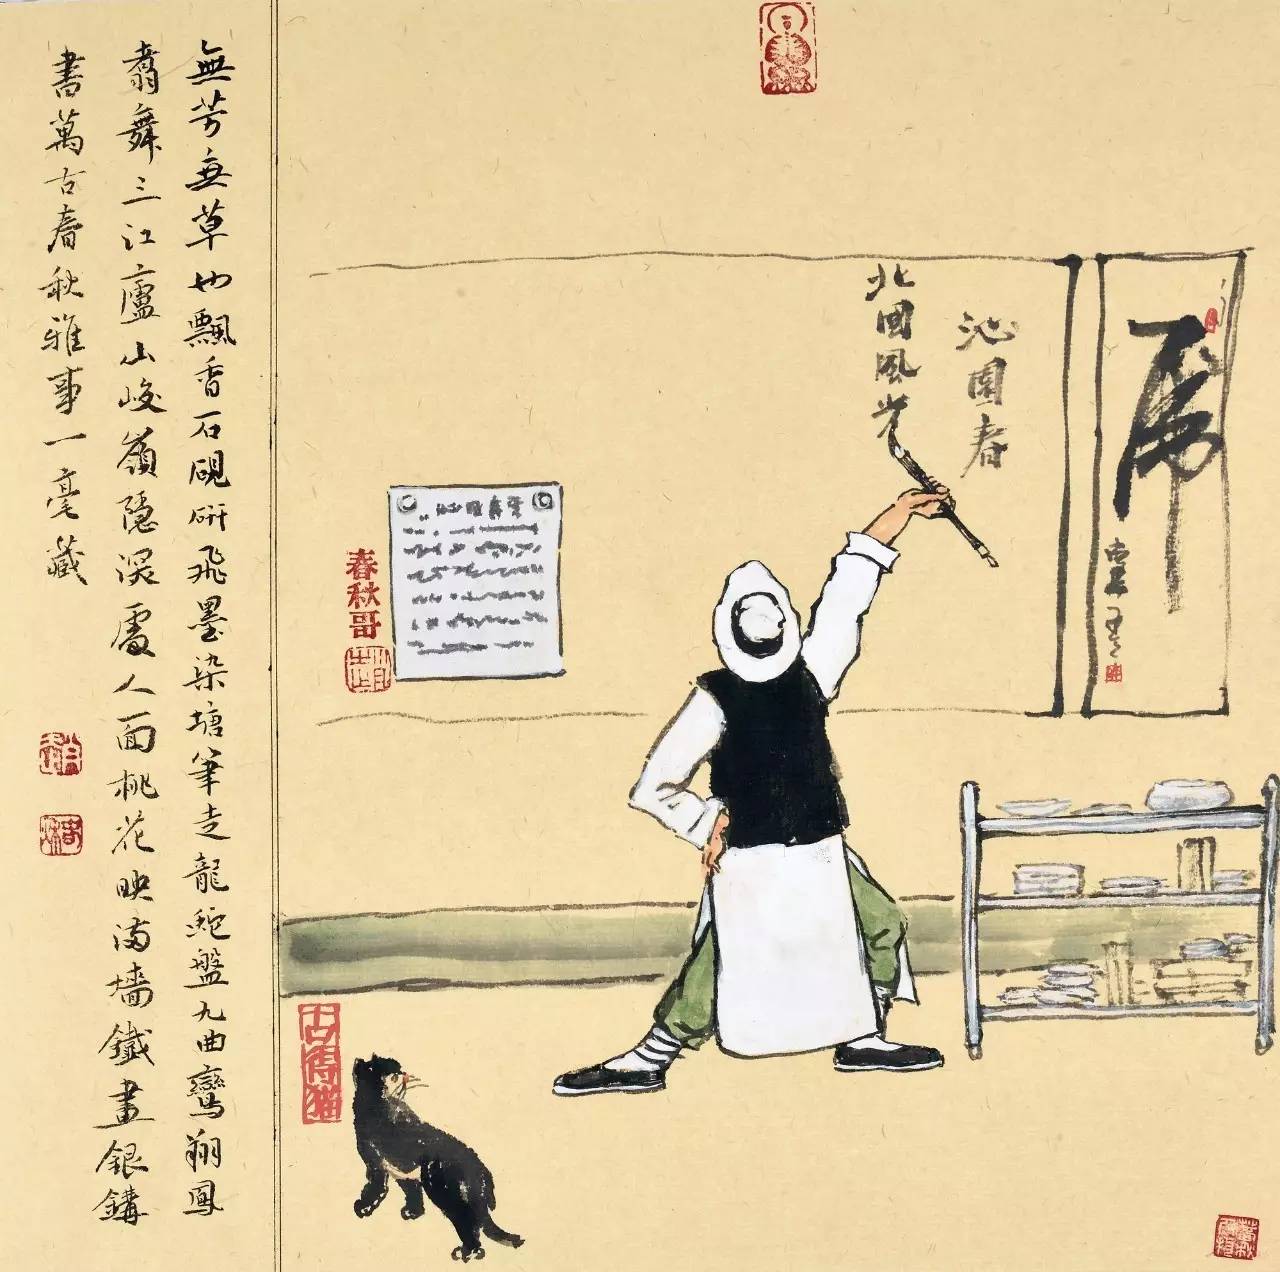 沁園春
北國風光
春秋哥
無芳無草也飄香石硯研飛墨染塘筆走龍蛇盤九曲鸞翔鳳
翥舞三江廬山峻嶺隱深處人面桃花映滿墻鐵畫銀鉤
書萬古春秋雅事一毫藏